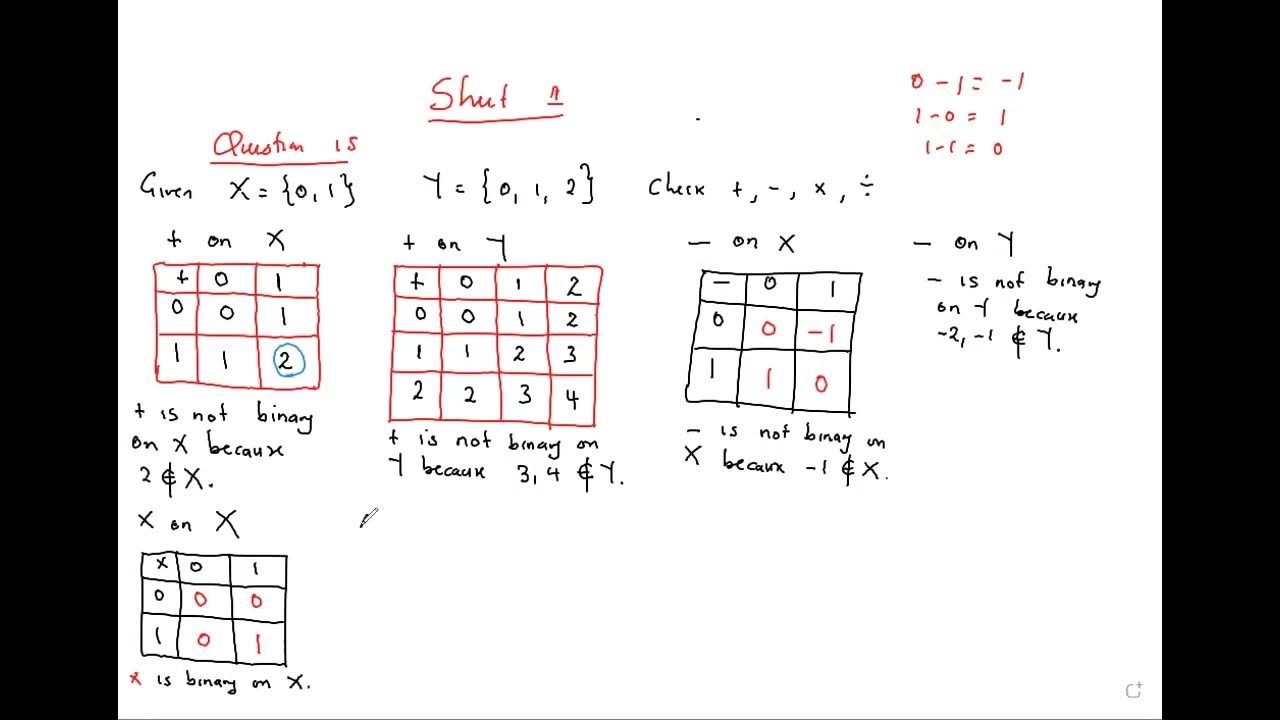 Shut 1
0 - 1 = -1
1 - 0 = 1
1 - 1 = 0
Question 15
Given X = {0, 1} Y = {0, 1, 2} Check +, -, ×, ÷
+ on X
+ 0 1
0 0 1
1 1 2
+ is not binary
on X because
2 ∉ X.
+ on Y
+ 0 1 2
0 0 1 2
1 1 2 3
2 2 3 4
+ is not binary on
Y because 3, 4 ∉ Y.
- on X
- 0 1
0 0 -1
1 1 0
- is not binary on
X because -1 ∉ X.
- on Y
- is not binary
on Y because
-2, -1 ∉ Y.
× on X
× 0 1
0 0 0
1 0 1
× is binary on X.